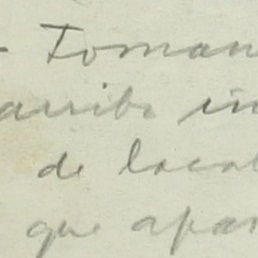 - Toman
arriba in
de local
que apar